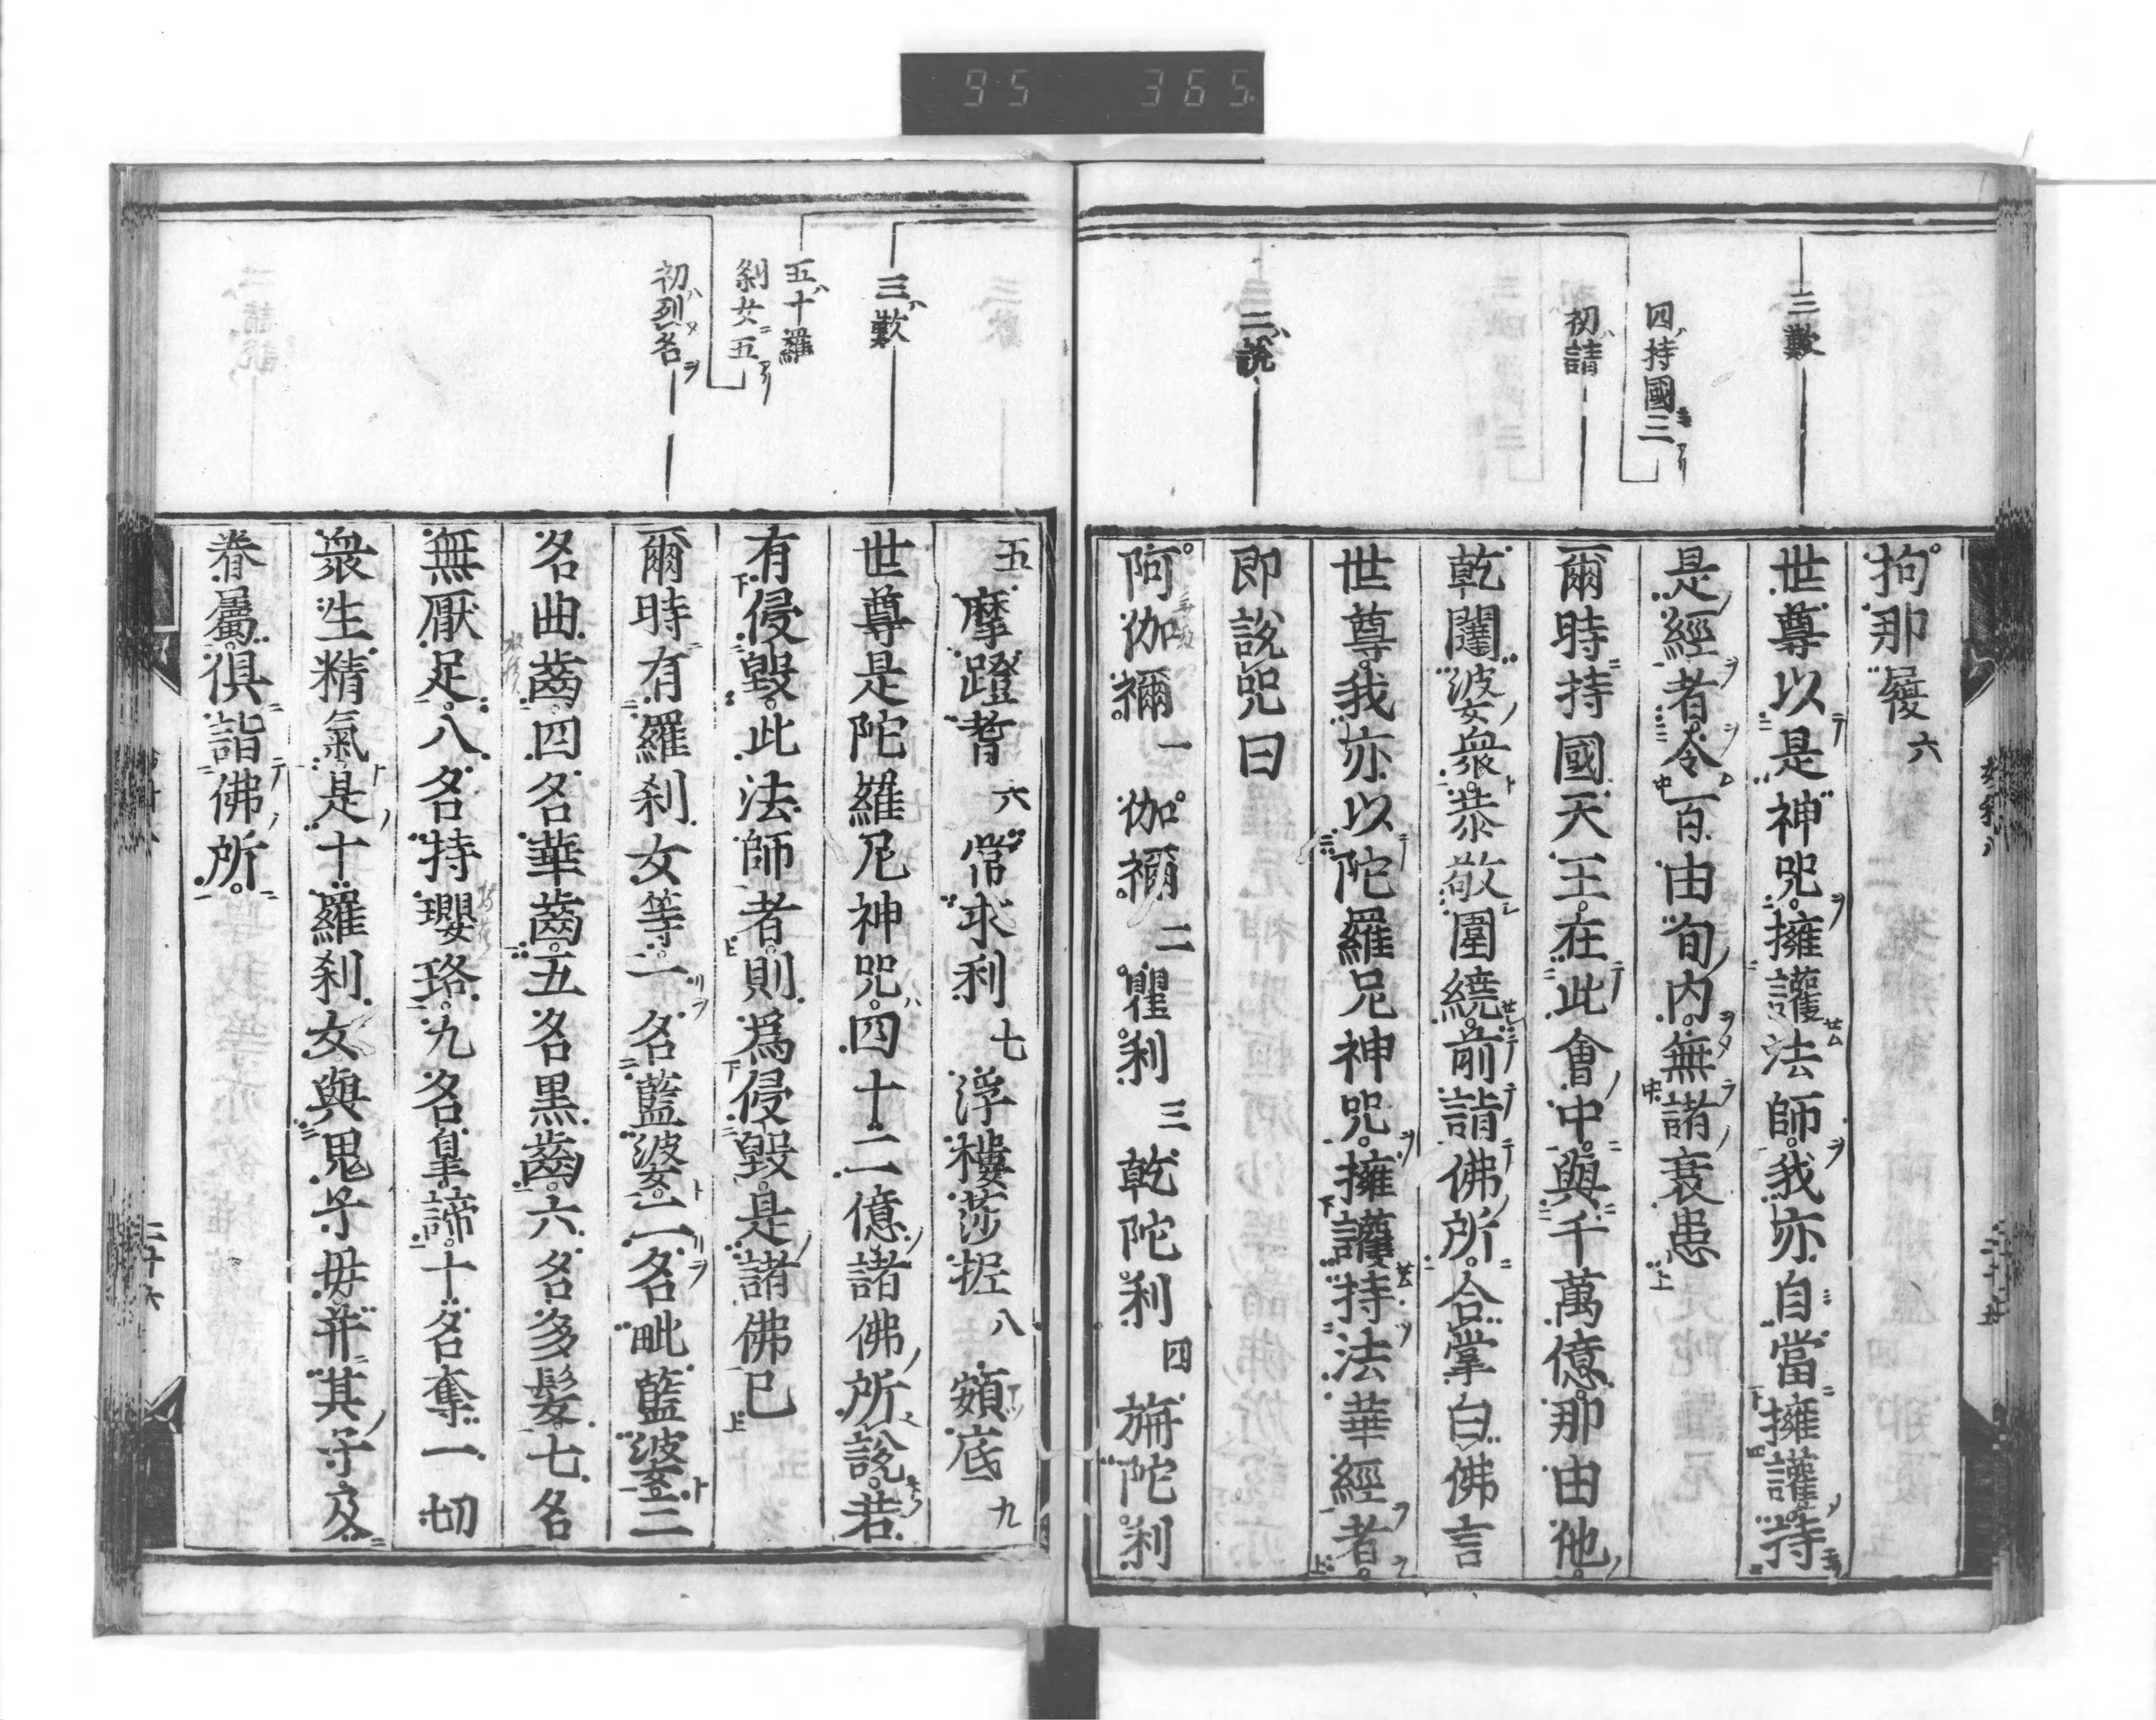 95 365
三歎
四持國三
初請
二說
拘那履六
世尊以是神咒擁護法師我亦自當擁護持
是經者令百由旬內無諸衰患
爾時持國天王在此會中與千萬億那由他
乾闥婆衆恭敬圍繞前詣佛所合掌白佛言
世尊我亦以陀羅尼神咒擁護持法華經者
即說咒曰
阿伽禰一伽禰二瞿利三乾陀利四旃陀利
三歎
五十羅
刹女五
初列名
五摩蹬耆六常求利七浮樓莎抳八頞底九
世尊是陀羅尼神咒四十二億諸佛所說若
有侵毀此法師者則爲侵毀是諸佛已
爾時有羅刹女等一名藍婆二名毗藍婆三
名曲齒四名華齒五名黑齒六名多髮七名
無厭足八名持瓔珞九名皐諦十名奪一切
衆生精氣是十羅刹女與鬼子母并其子及
眷屬俱詣佛所
二十六